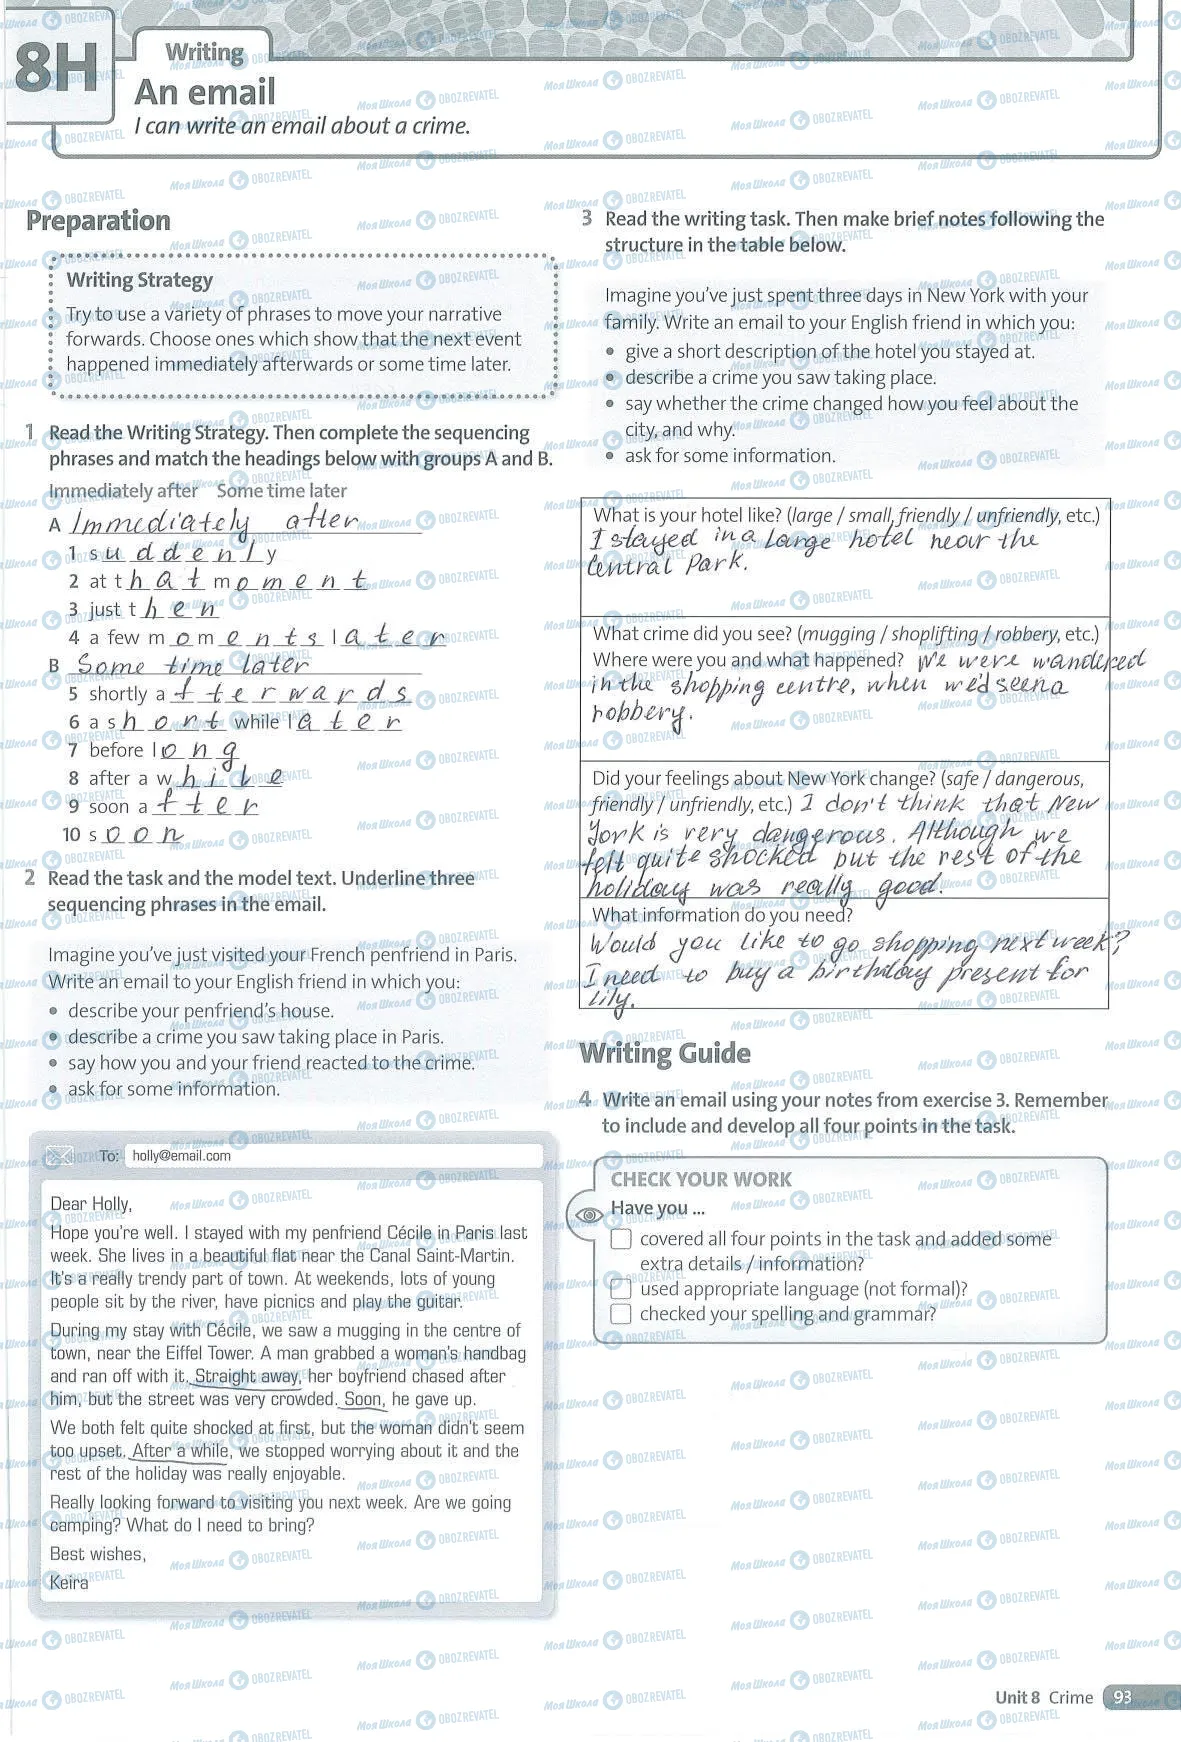 8H
Writing
An email
I can write an email about a crime.
Preparation
Writing Strategy
Try to use a variety of phrases to move your narrative
forwards. Choose ones which show that the next event
happened immediately afterwards or some time later.
1 Read the Writing Strategy. Then complete the sequencing
phrases and match the headings below with groups A and B.
Immediately after Some time later
A Immediately after
1 suddenly
2 at that moment
3 just then
4 a few moments later
B Some time later
5 shortly afterwards
6 a short while later
7 before long
8 after a while
9 soon after
10 soon
2 Read the task and the model text. Underline three
sequencing phrases in the email.
Imagine you've just visited your French penfriend in Paris.
Write an email to your English friend in which you:
• describe your penfriend's house.
• describe a crime you saw taking place in Paris.
• say how you and your friend reacted to the crime.
• ask for some information.
To: holly@email.com
Dear Holly,
Hope you're well. I stayed with my penfriend Cécile in Paris last
week. She lives in a beautiful flat near the Canal Saint-Martin.
It's a really trendy part of town. At weekends, lots of young
people sit by the river, have picnics and play the guitar.
During my stay with Cécile, we saw a mugging in the centre of
town, near the Eiffel Tower. A man grabbed a woman's handbag
and ran off with it. Straight away, her boyfriend chased after
him, but the street was very crowded. Soon, he gave up.
We both felt quite shocked at first, but the woman didn't seem
too upset. After a while, we stopped worrying about it and the
rest of the holiday was really enjoyable.
Really looking forward to visiting you next week. Are we going
camping? What do I need to bring?
Best wishes,
Keira
3 Read the writing task. Then make brief notes following the
structure in the table below.
Imagine you've just spent three days in New York with your
family. Write an email to your English friend in which you:
• give a short description of the hotel you stayed at.
• describe a crime you saw taking place.
• say whether the crime changed how you feel about the
city, and why.
• ask for some information.
What is your hotel like? (large / small, friendly / unfriendly, etc.)
I stayed in a large hotel near the
Central Park.
What crime did you see? (mugging / shoplifting / robbery, etc.)
Where were you and what happened? We were wandered
in the shopping centre, when we'd seen a
robbery.
Did your feelings about New York change? (safe / dangerous,
friendly / unfriendly, etc.) I don't think that New
York is very dangerous. Although we
felt quite shocked but the rest of the
holiday was really good.
What information do you need?
Would you like to go shopping next week?
I need to buy a birthday present for
Lily.
Writing Guide
4 Write an email using your notes from exercise 3. Remember
to include and develop all four points in the task.
CHECK YOUR WORK
Have you ...
covered all four points in the task and added some
extra details / information?
used appropriate language (not formal)?
checked your spelling and grammar?
Unit 8 Crime 93
Моя Школа OBOZREVATEL